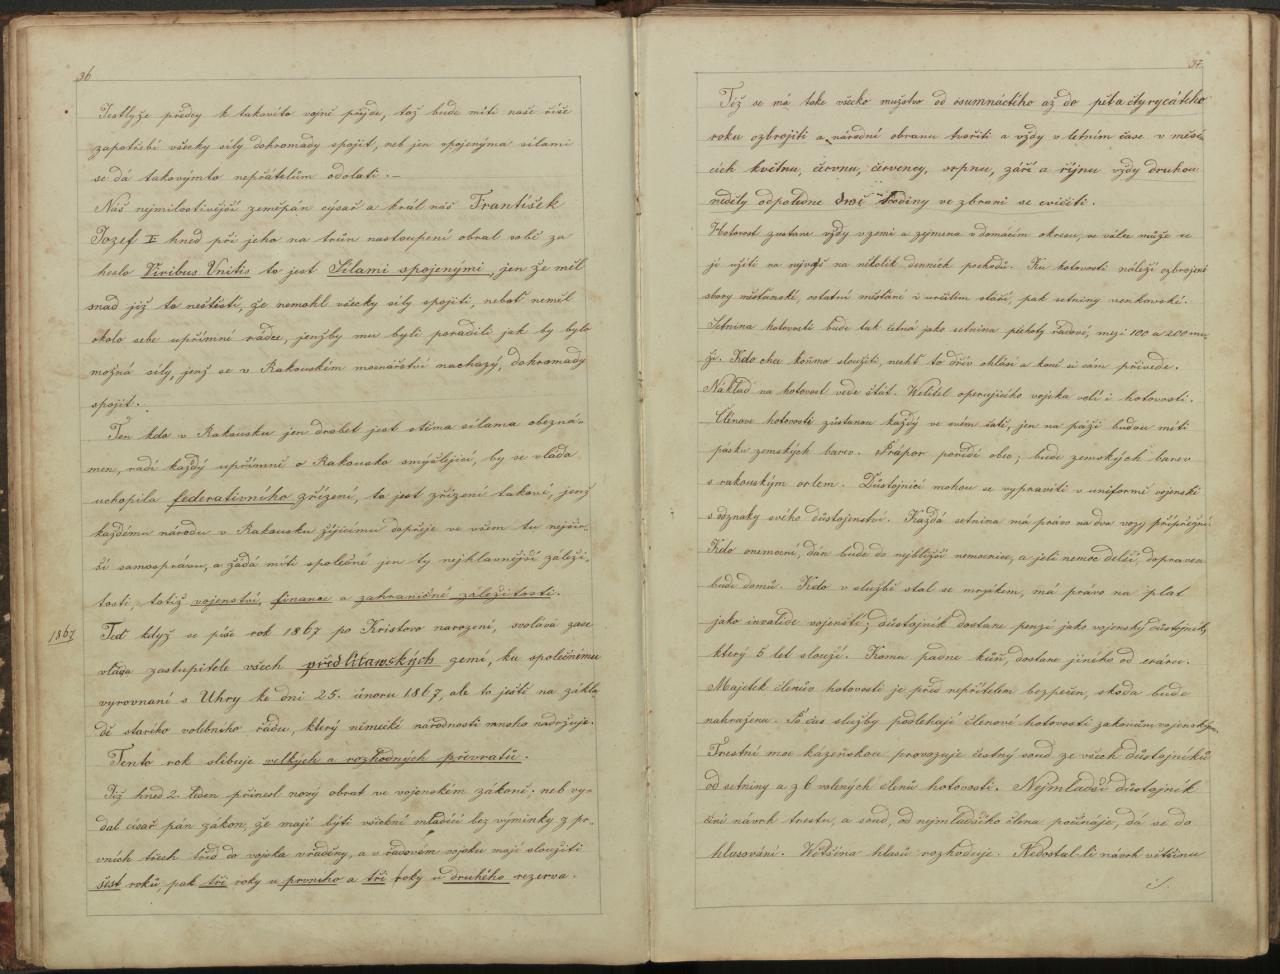 36
Jestlyže předcy k takovíto vojně přijde, tož bude míti naše říše
zapotřebí všecky síly dohromady spojit, neb jen spojenýma silami
se dá takovýmto nepřátelům odolati. —
Náš nejmilostivější zeměpán cýsař a král náš František
Jozef I hned při jeho na trůn nastoupení obral sobě za
heslo Viribus Unitis to jest Silami spojenými, jen že měl
snad již to neštěstí, že nemohl všecky síly spojiti, neboť neměl
okolo sebe upřímné rádce, jenžby mu byli poradili jak by bylo
možná síly, jenž se v Rakouském mocnářství nachazý, dohromady
spojit.
Ten kdo v Rakousku jen drobet jest stěma silama obezná-
men, radí každý upřímně o Rakousko smýšlející, by se vláda
uchopila federativního zřízení, to jest zřízení takové, jenž
každému národu v Rakousku žijícímu dopřeje ve všem tu nejšir-
ší samosprávu, a žádá míti společné jen ty nejhlavnější záleži-
tosti totiž vojenství, finance a zahraniční záležitosti.
1867
Teď když se píše rok 1867 po Kristovo narození, svolává zase
vláda zastupitele všech předlitawských zemí, ku společnému
vyrovnaní s Uhry ke dni 25. únoru 1867, ale to ještě na zákla
dě starého volebního řádu, který německé národnosti mnoho nadržuje.
Tento rok slibuje velkých a rozhodných převratů.
Již hned 2. leden přinesl nový obrat ve vojenském zákoně. neb vy-
dal císař pán zákon, že mají býti všickni mladíci bez výminky z pr-
vních třech tříd do vojska vřaděny, a v řadovém vojsku mají sloužiti
šest roků, pak tři roky u prvního a tři roky u druhého rezerva.
37
Též se má take všecko mužstvo od osumnáctého až do pětačtyrycátého
roku ozbrojiti a národní obranu tvořiti a vždy v letním čase v měsí-
cích květnu, červnu, červency, srpnu, září a říjnu vždy druhou
neděly odpoledne dvě hodiny ve zbrani se cvičiti.
Hotovost zustane vždy vzemi a zejmena vdomácím okresu, ve válce může se
jí užiti na nejvýš na několik denních pochodů. Ku hotovosti náleží ozbrojené
sbory městanské, ostatní měšťané v určitém stáří, pak setniny venkovské.
Setnina hotovosti bude tak četná jako setnina pěchoty řadové, mezi 100 a 200 mu-
ži. Kdo chce koňmo sloužiti, nechť to dřív ohlásí a koně si sám přivede.
Náklad na hotovost vede štát. Welitel operujícího vojska velí i hotovosti.
Členove hotovosti zůstanou každý ve svém šatě, jen na paži budou míti
pásku zemských barev. Prápor pořídí obec; bude zemských barev
s rakouským orlem. Důstojníci mohou se vypraviti v uniformě vojenské
s odznaky svého důstojenství. Každá setnina má právo na dva vozy přípřežní.
Kdo onemocní, dán bude do nejbližší nemocnice, a jeli nemoc delší, dopraven
bude domů. Kdo v službě stal se mrzákem, má právo na plat
jako invalide vojenští; důstojník dostane penzi jako vojenský důstojník,
který 5 let slouží. Komu padne kůň, dostane jiného od eráru.
Majetek členův hotovosti je před nepřítelem bezpečen, škoda bude
nahražena. Po čas služby podlehají členové hotovosti zakonům vojenským.
Trestní moc kázeňskou provozuje čestný soud ze všech důstojníků
od setniny a z 6 volených členů hotovosti. Nejmladší důstojník
činí návrh trestu, a soud, od nejmladšího člena počínaje, dá se do
hlasování. Wětšina hlasů rozhoduje. Nedostal-li návrh většinu